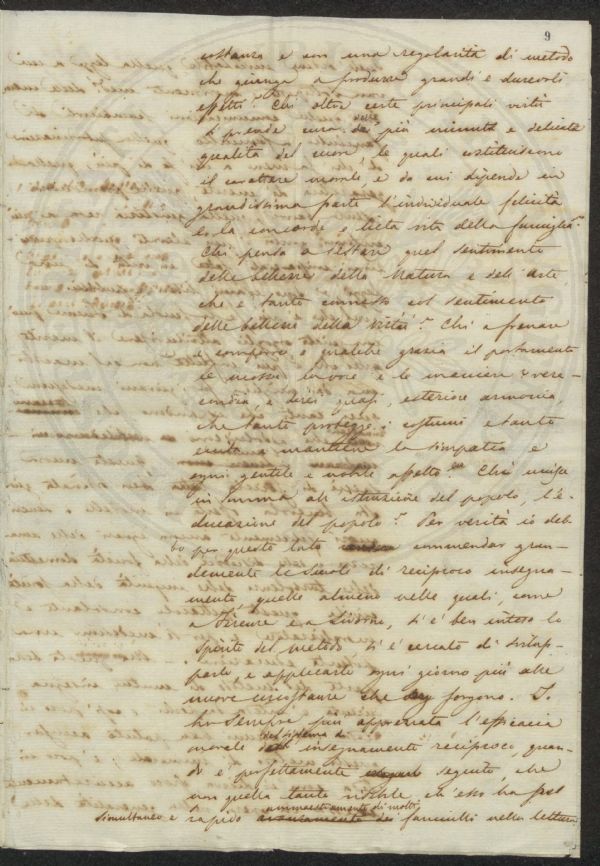 9
costanza e con una regolarità di metodo
che giunga a produrre grandi e durevoli
effetti? Chi oltre certe principali virtù
si prende cura delle più minute e delicate
qualità del cuore, le quali costituiscono
il carattere morale e da cui dipende in
grandissima parte l'individuale felicità
e la concorde e lieta vita della famiglia?
Chi pensa a destare quel sentimento
delle bellezze della Natura e dell'arte,
che è tanto connesso col sentimento
delle bellezze della virtù? Chi a frenare
e comporre a qualche grazia il portamento
le mosse la voce e le maniere e vere-
condia e direi quasi, esteriore armonia,
che tanto protegge i costumi e tanto
aiuta a mantener la simpatia e
ogni gentile e nobile affetto? Chi unisce
in somma all'istruzione del popolo, l'e-
ducazione del popolo? Per verità io deb-
bo per questo lato commendar gran-
demente le Scuole di reciproco insegna-
mento quelle almeno nelle quali, come
a Firenze e a Livorno, si è ben inteso lo
Spirito del metodo, si è cercato di svilup-
parlo, e applicarlo ogni giorno più alle
nuove circostanze che sorgono. Io
ho sempre più apprezzata l'efficacia
morale del sistema d'insegnamento reciproco, quan-
do è perfettamente seguito, che
non quella tanto visibile ch'esso ha sul
simultaneo e rapido ammaestramento di molti fanciulli nella lettura